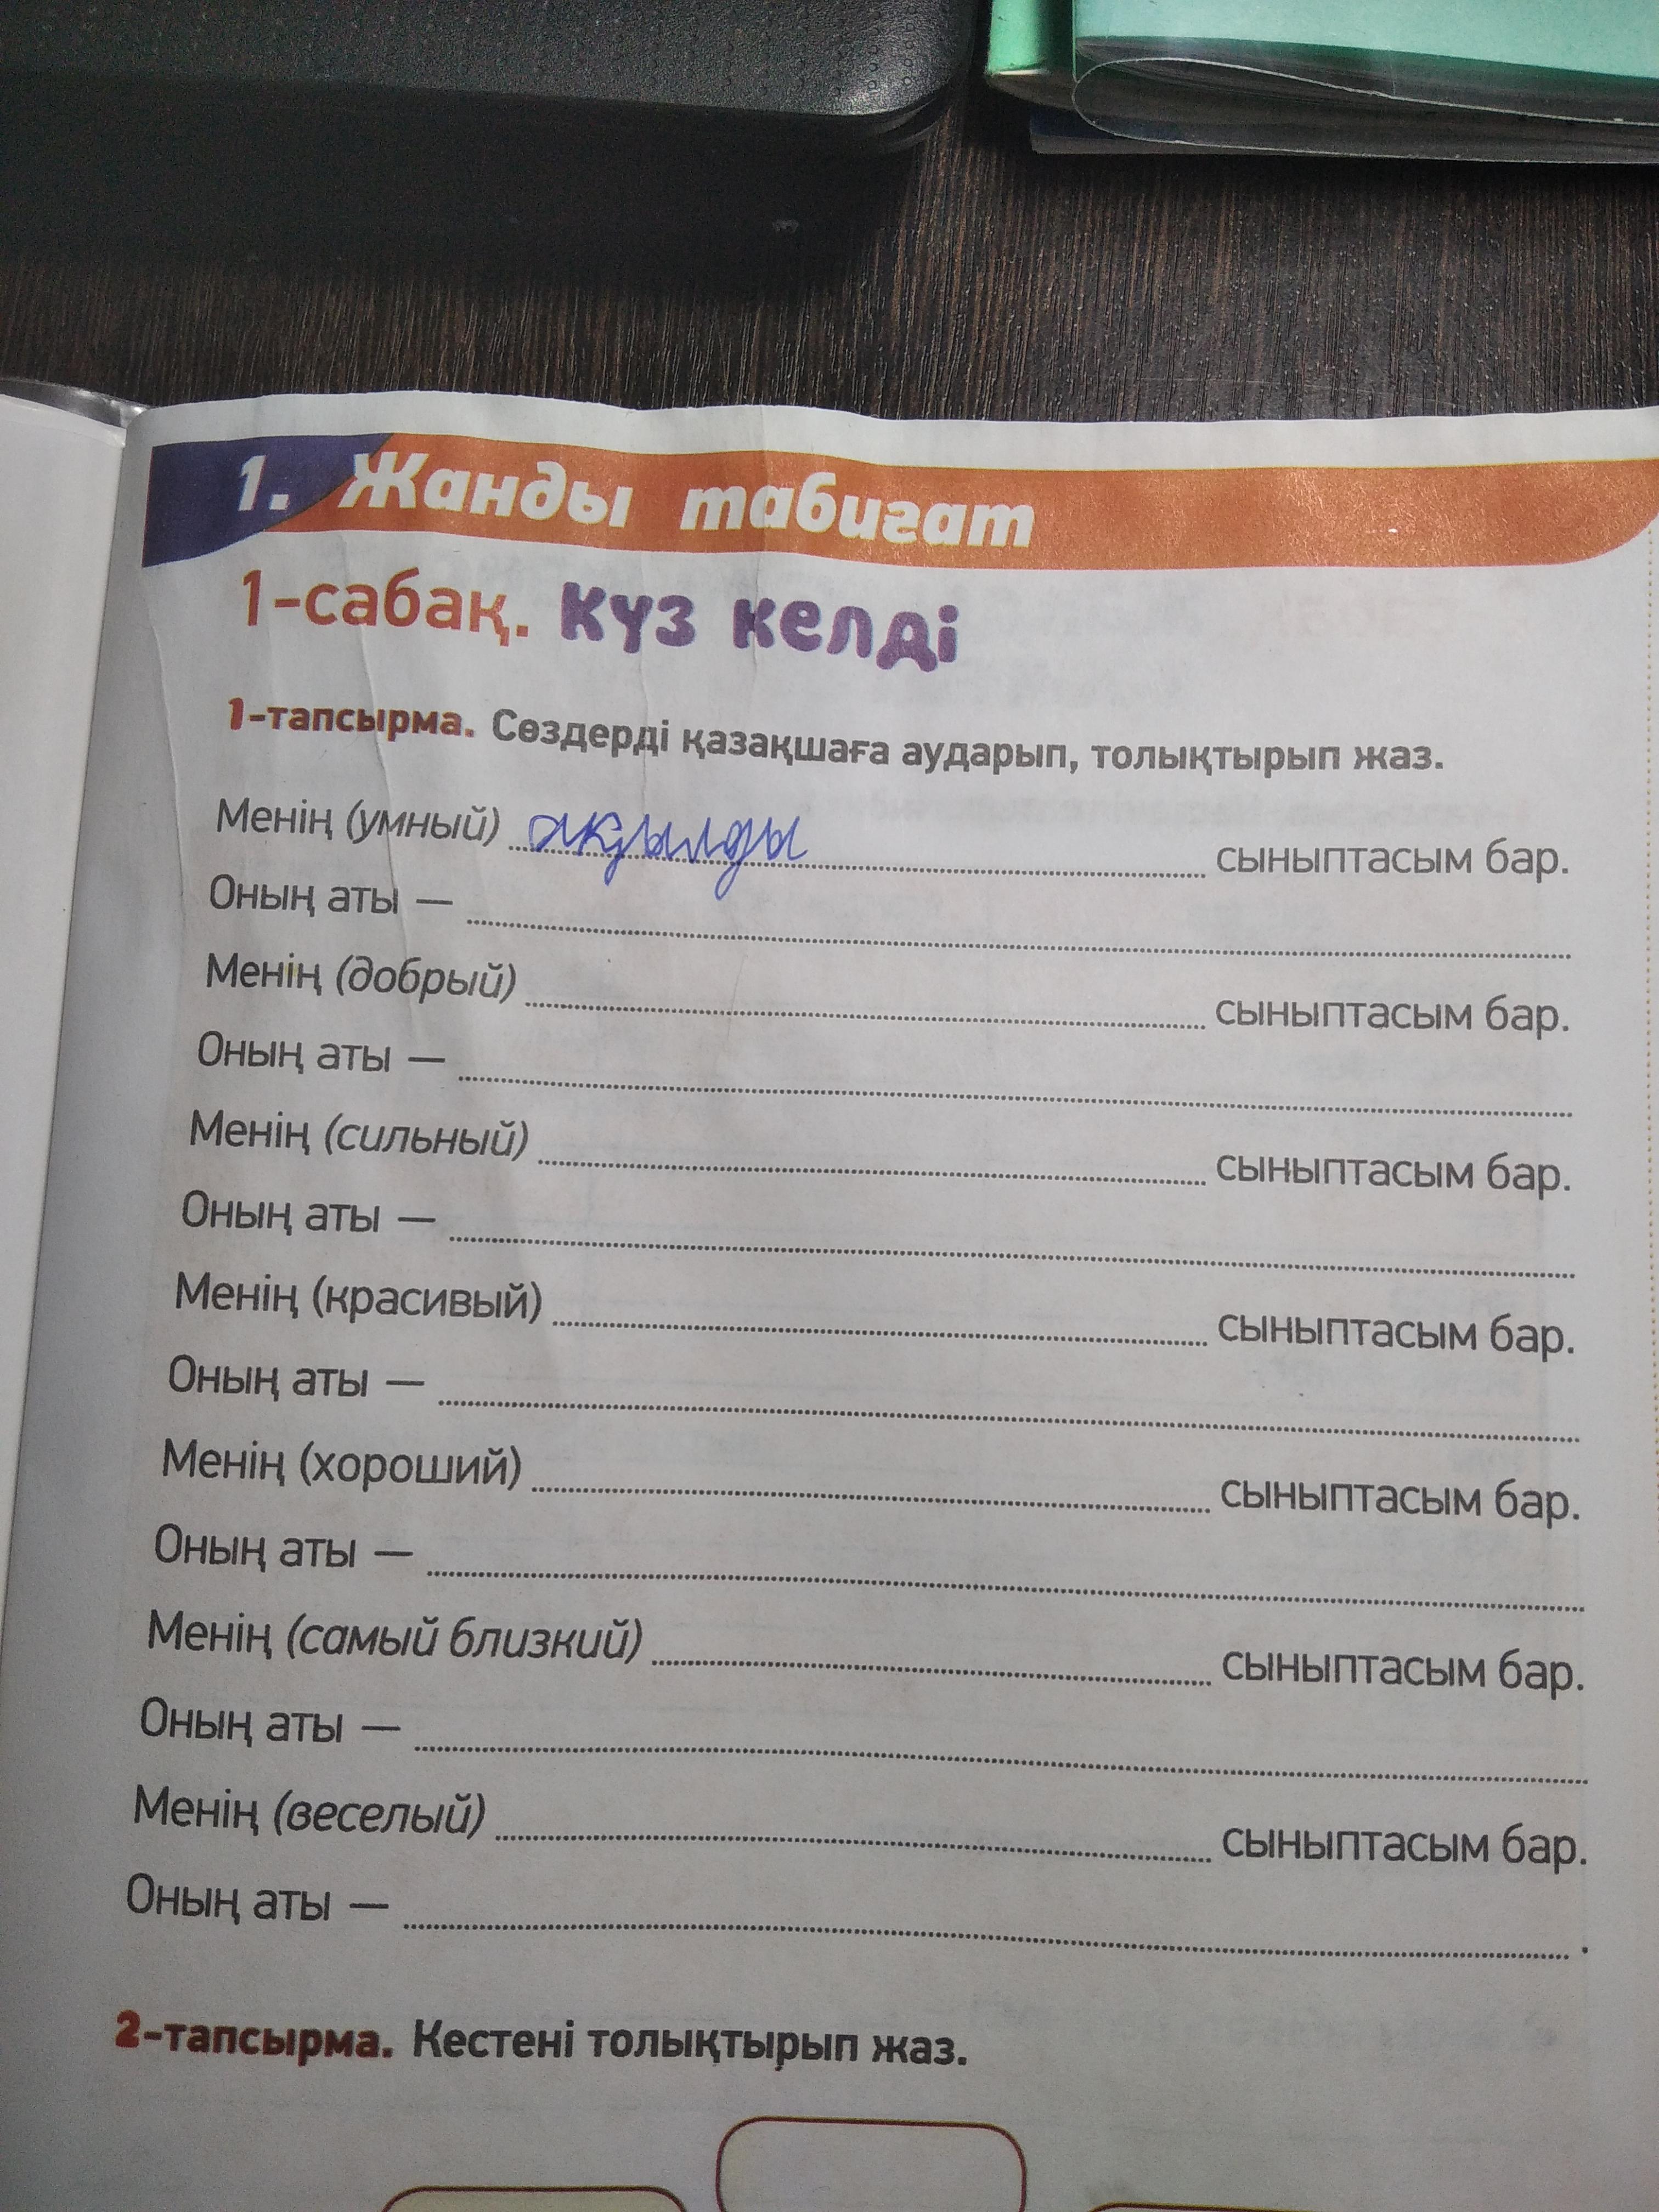 1. Жанды табиғат
1-сабақ. Күз келді
1-тапсырма. Сөздерді қазақшаға аударып, толықтырып жаз.
Менің (умный) ақылды сыныптасым бар.
Оның аты —
Менің (добрый) сыныптасым бар.
Оның аты —
Менің (сильный) сыныптасым бар.
Оның аты —
Менің (красивый) сыныптасым бар.
Оның аты —
Менің (хороший) сыныптасым бар.
Оның аты —
Менің (самый близкий) сыныптасым бар.
Оның аты —
Менің (веселый) сыныптасым бар.
Оның аты — .
2-тапсырма. Кестені толықтырып жаз.